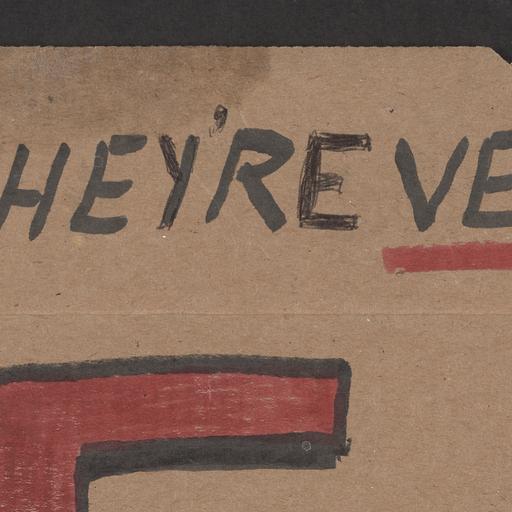 HEY'RE VE